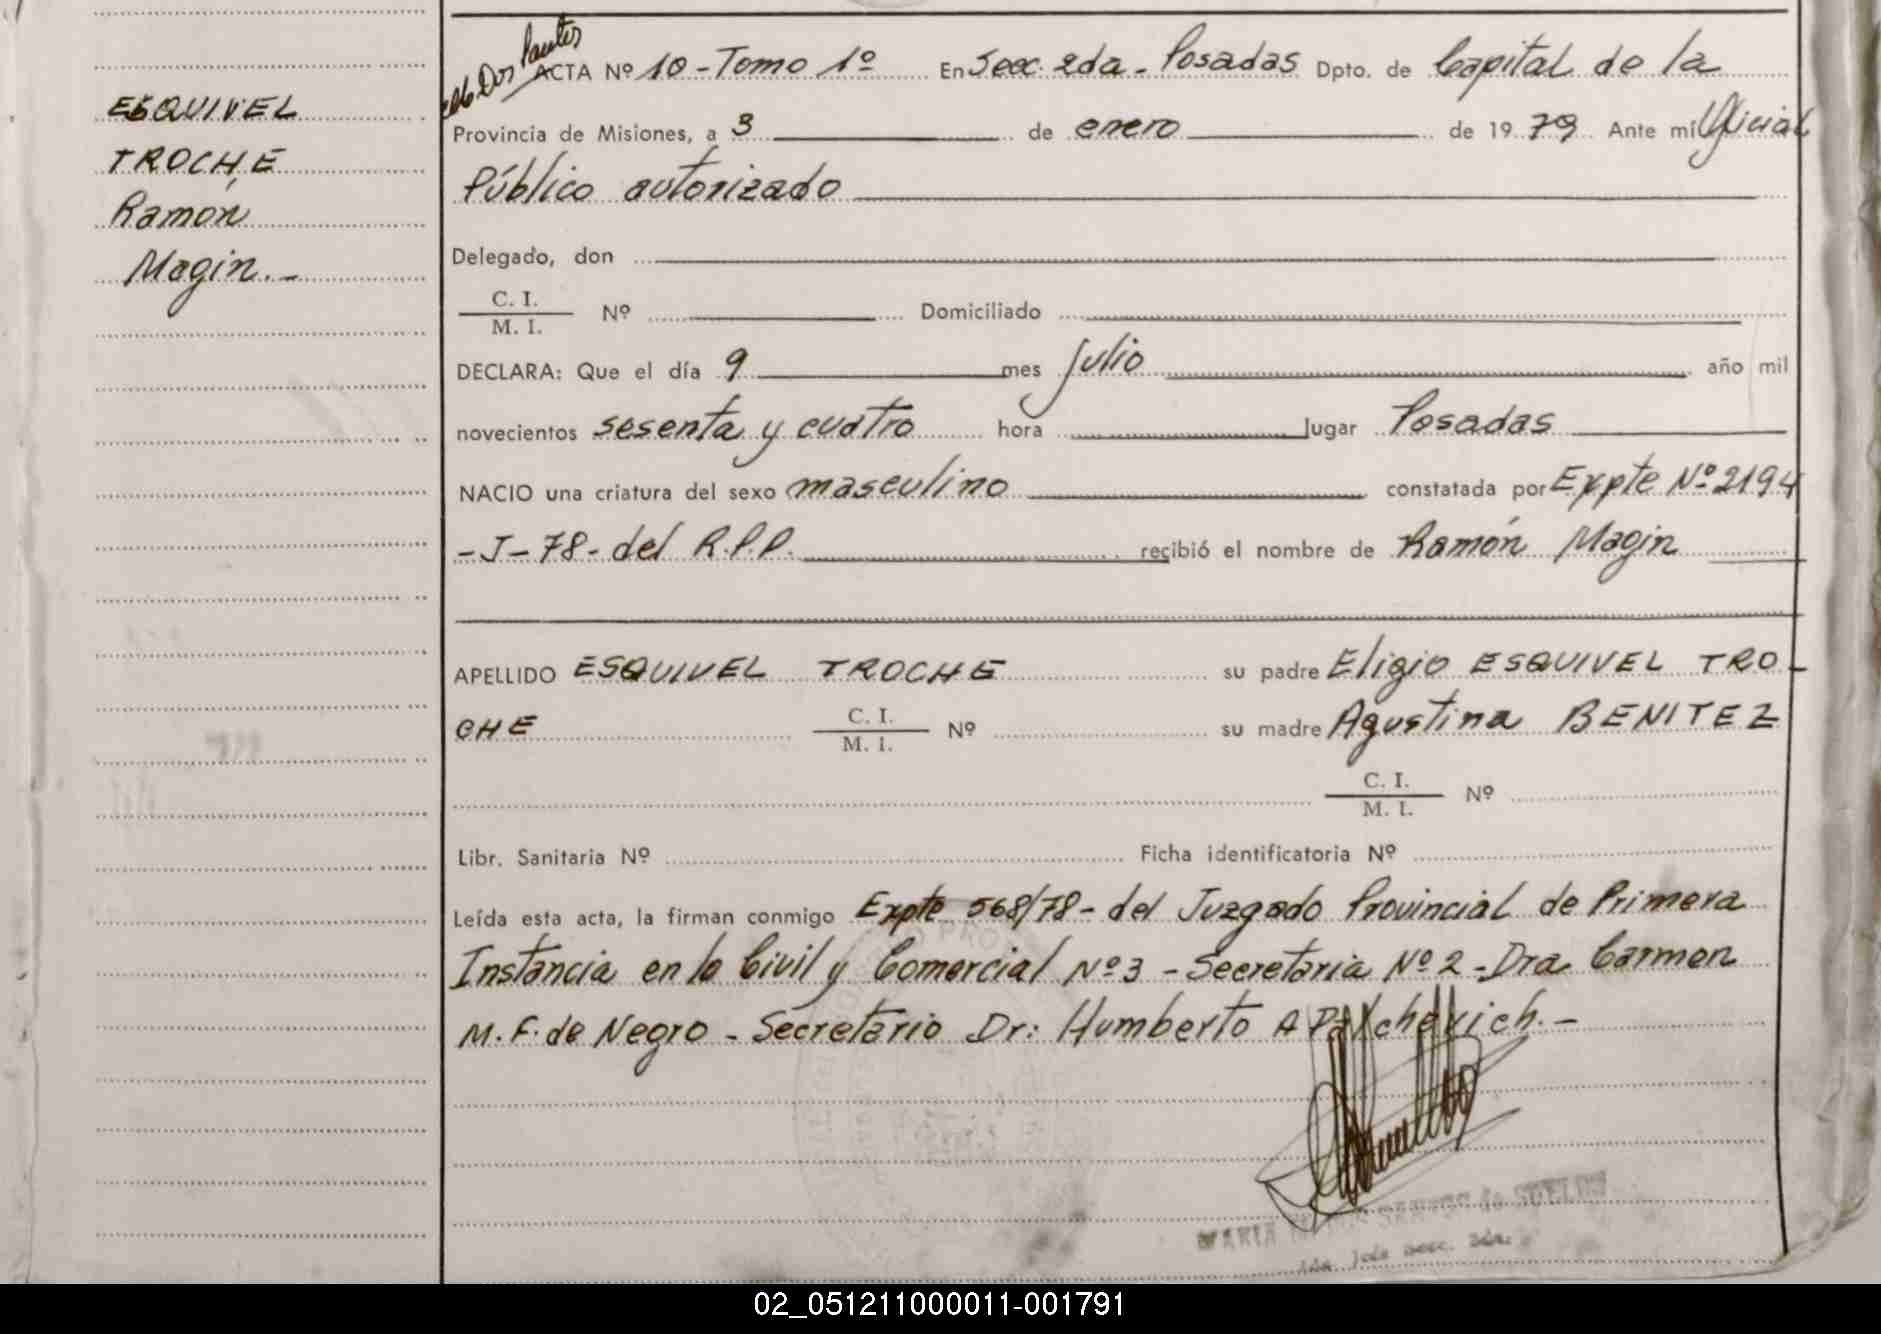 ESQUIVEL
TROCHE
Ramón
Magin.-
Dos Santos
ACTA Nº 10 - Tomo 1º En Secc. 2da - Posadas Dpto. de Capital de la
Provincia de Misiones, a 3 de enero de 1979 Ante mí Oficial
Público autorizado
Delegado, don
C. I.
M. I.
Nº Domiciliado
DECLARA: Que el día 9 mes Julio año mil
novecientos sesenta y cuatro hora lugar Posadas
NACIO una criatura del sexo masculino constatada por Expte Nº 2194
-J-78- del R.P.P. recibió el nombre de Ramón Magin
APELLIDO ESQUIVEL TROCHE su padre Eligio ESQUIVEL TRO-
CHE C. I. Nº su madre Agustina BENITEZ
M. I.
C. I. Nº
M. I.
Libr. Sanitaria Nº Ficha identificatoria Nº
Leída esta acta, la firman conmigo Expte 568/78- del Juzgado Provincial de Primera
Instancia en lo Civil y Comercial Nº 3 - Secretaria Nº 2 - Dra Carmen
M. F. de Negro - Secretario Dr: Humberto A
MARIA SANTOS de SUELDO
Secc. 2da.
02_051211000011-001791